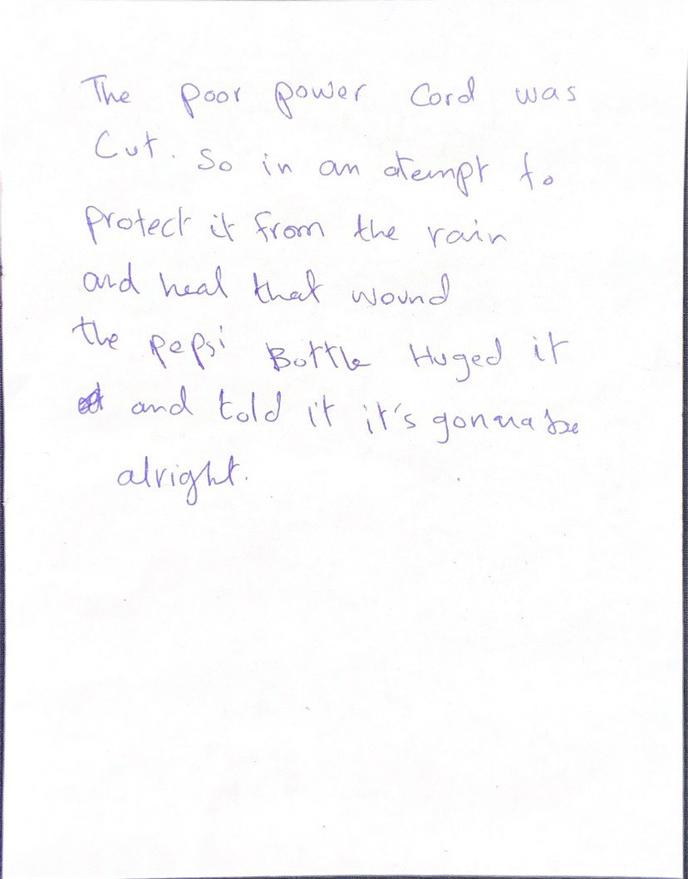 The poor power Cord was
Cut. So in an atempt to
protect it from the rain
and heal that wound
the pepsi Bottle Huged it
and told it it's gonna be
alright.